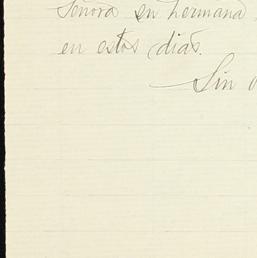 Señora su hermana
en estos dias.
Sin